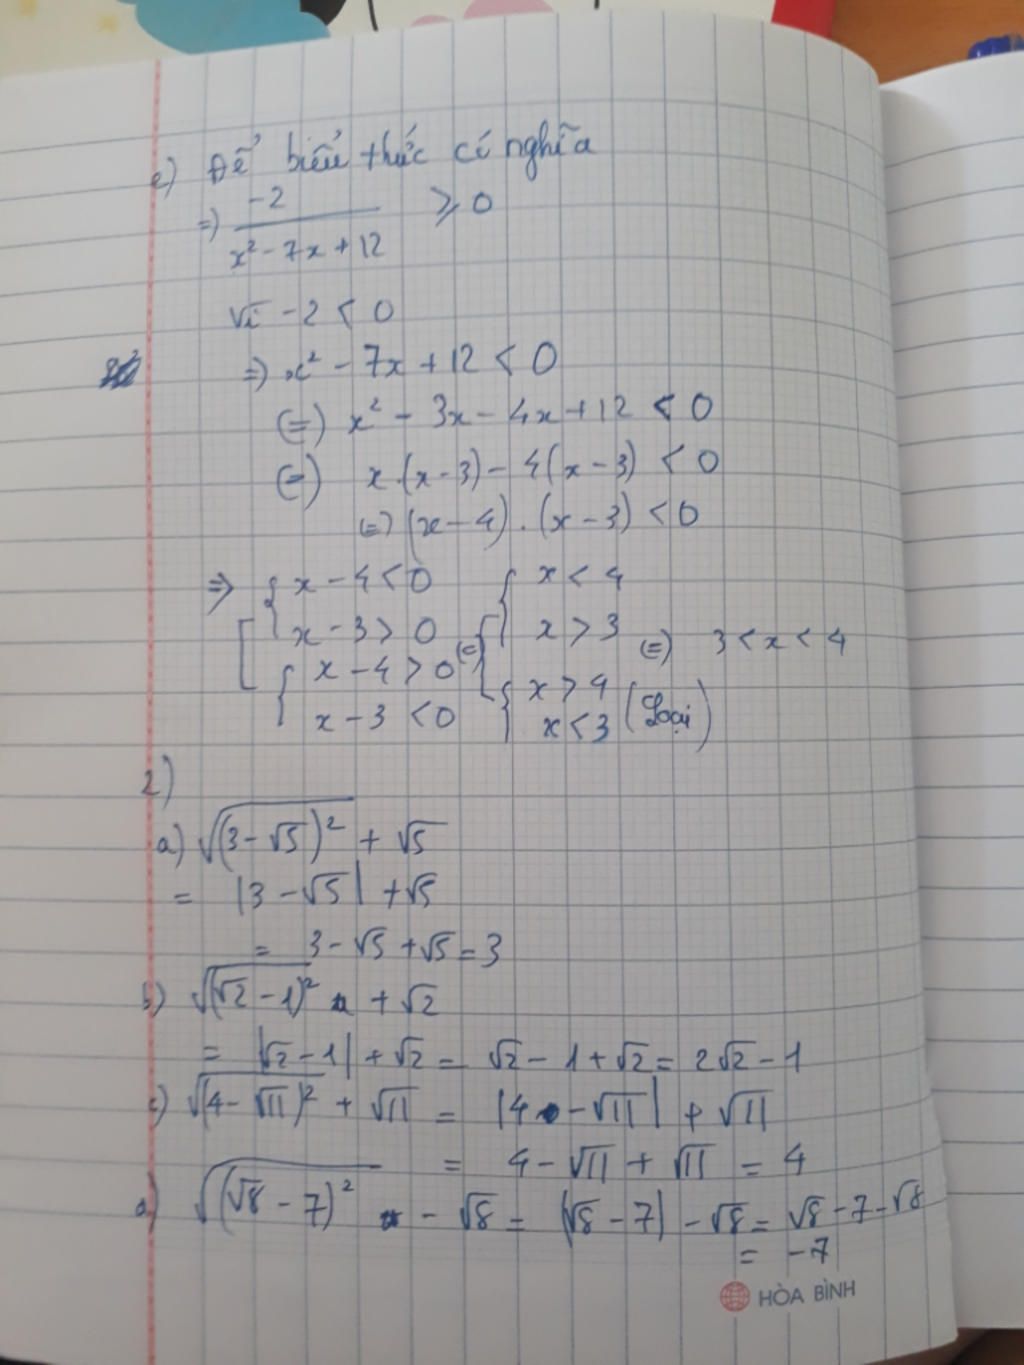 e) Để biểu thức có nghĩa
=) -2/(x² - 7x + 12) ⩾ 0
Vì -2 < 0
=) x² - 7x + 12 < 0
(=) x² - 3x - 4x + 12 < 0
(=) x.(x-3) - 4(x-3) < 0
(=) (x-4).(x-3) < 0
=> [ { x - 4 < 0 (=) [ { x < 4
x - 3 > 0 x > 3 (=) 3 < x < 4
{ x - 4 > 0 { x > 4
x - 3 < 0 x < 3 (Loại)
2)
a) √(3-√5)² + √5
= |3 - √5| + √5
= 3 - √5 + √5 = 3
b) √(√2 - 1)² + √2
= |√2 - 1| + √2 = √2 - 1 + √2 = 2√2 - 1
c) √(4-√11)² + √11 = |4 - √11| + √11
= 4 - √11 + √11 = 4
d) √(√8 - 7)² - √8 = |√8 - 7| - √8 = √8 - 7 - √8
= -7
HÒA BÌNH